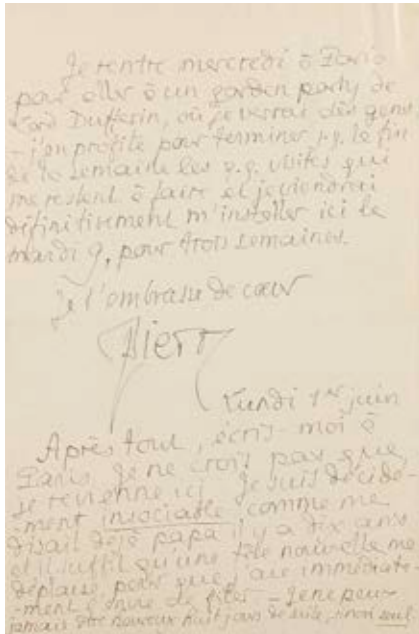 Je rentre mercredi à Paris
pour aller à un garden party de
Lord Dufferin, où je verrai des gens
j'en profite pour terminer la fin
de la semaine les visites qui
me restent à faire et je viendrai
définitivement m'installer ici le
mardi 9, pour trois semaines.
Je t'embrasse de cœur
Lundi 1er juin
Après tout, écris-moi à
Paris je ne crois pas que
je revienne ici Je suis décidé-
-ment insociable comme me
disait déjà papa il y a dix ans
et il suffit qu'une tête nouvelle me
déplaise pour que j'aie immédiate-
-ment envie de - Je ne peux
jamais être heureux huit jours de suite, sinon seul